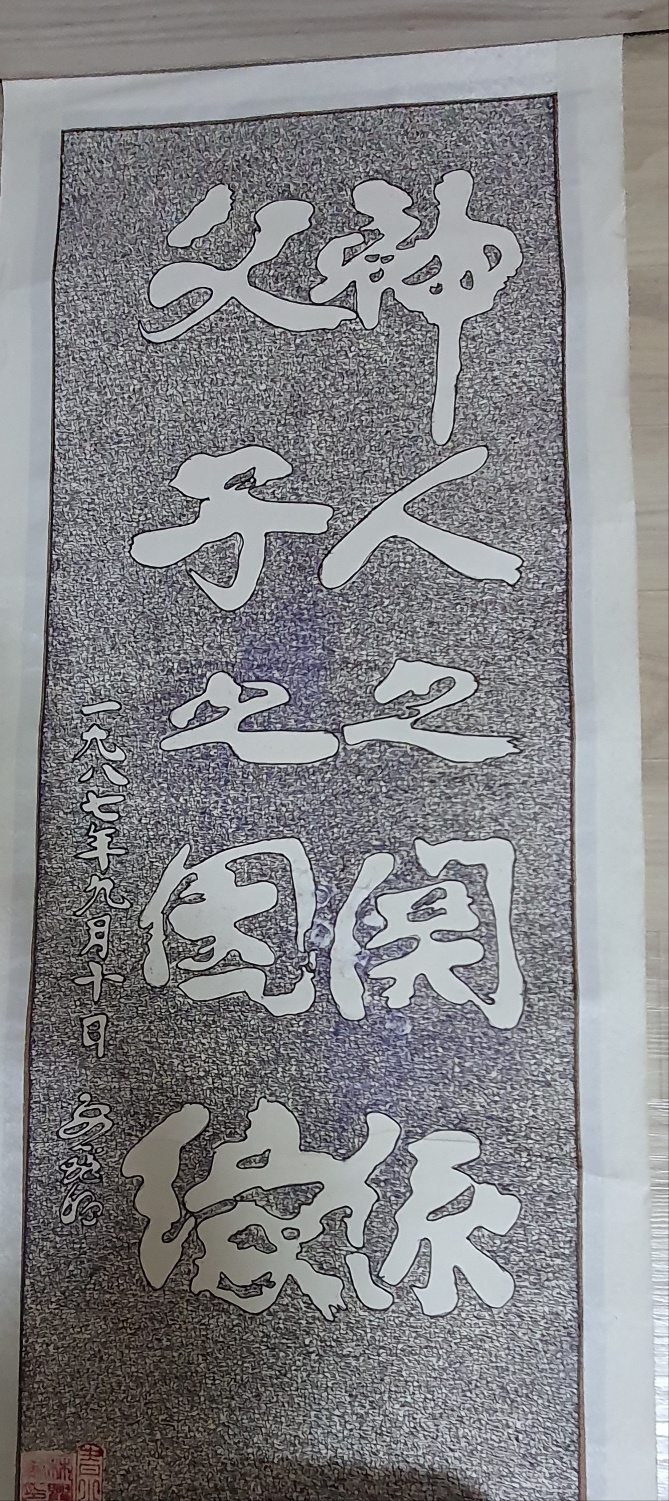 神人之關係
父子之因緣
一九八七年九月十日